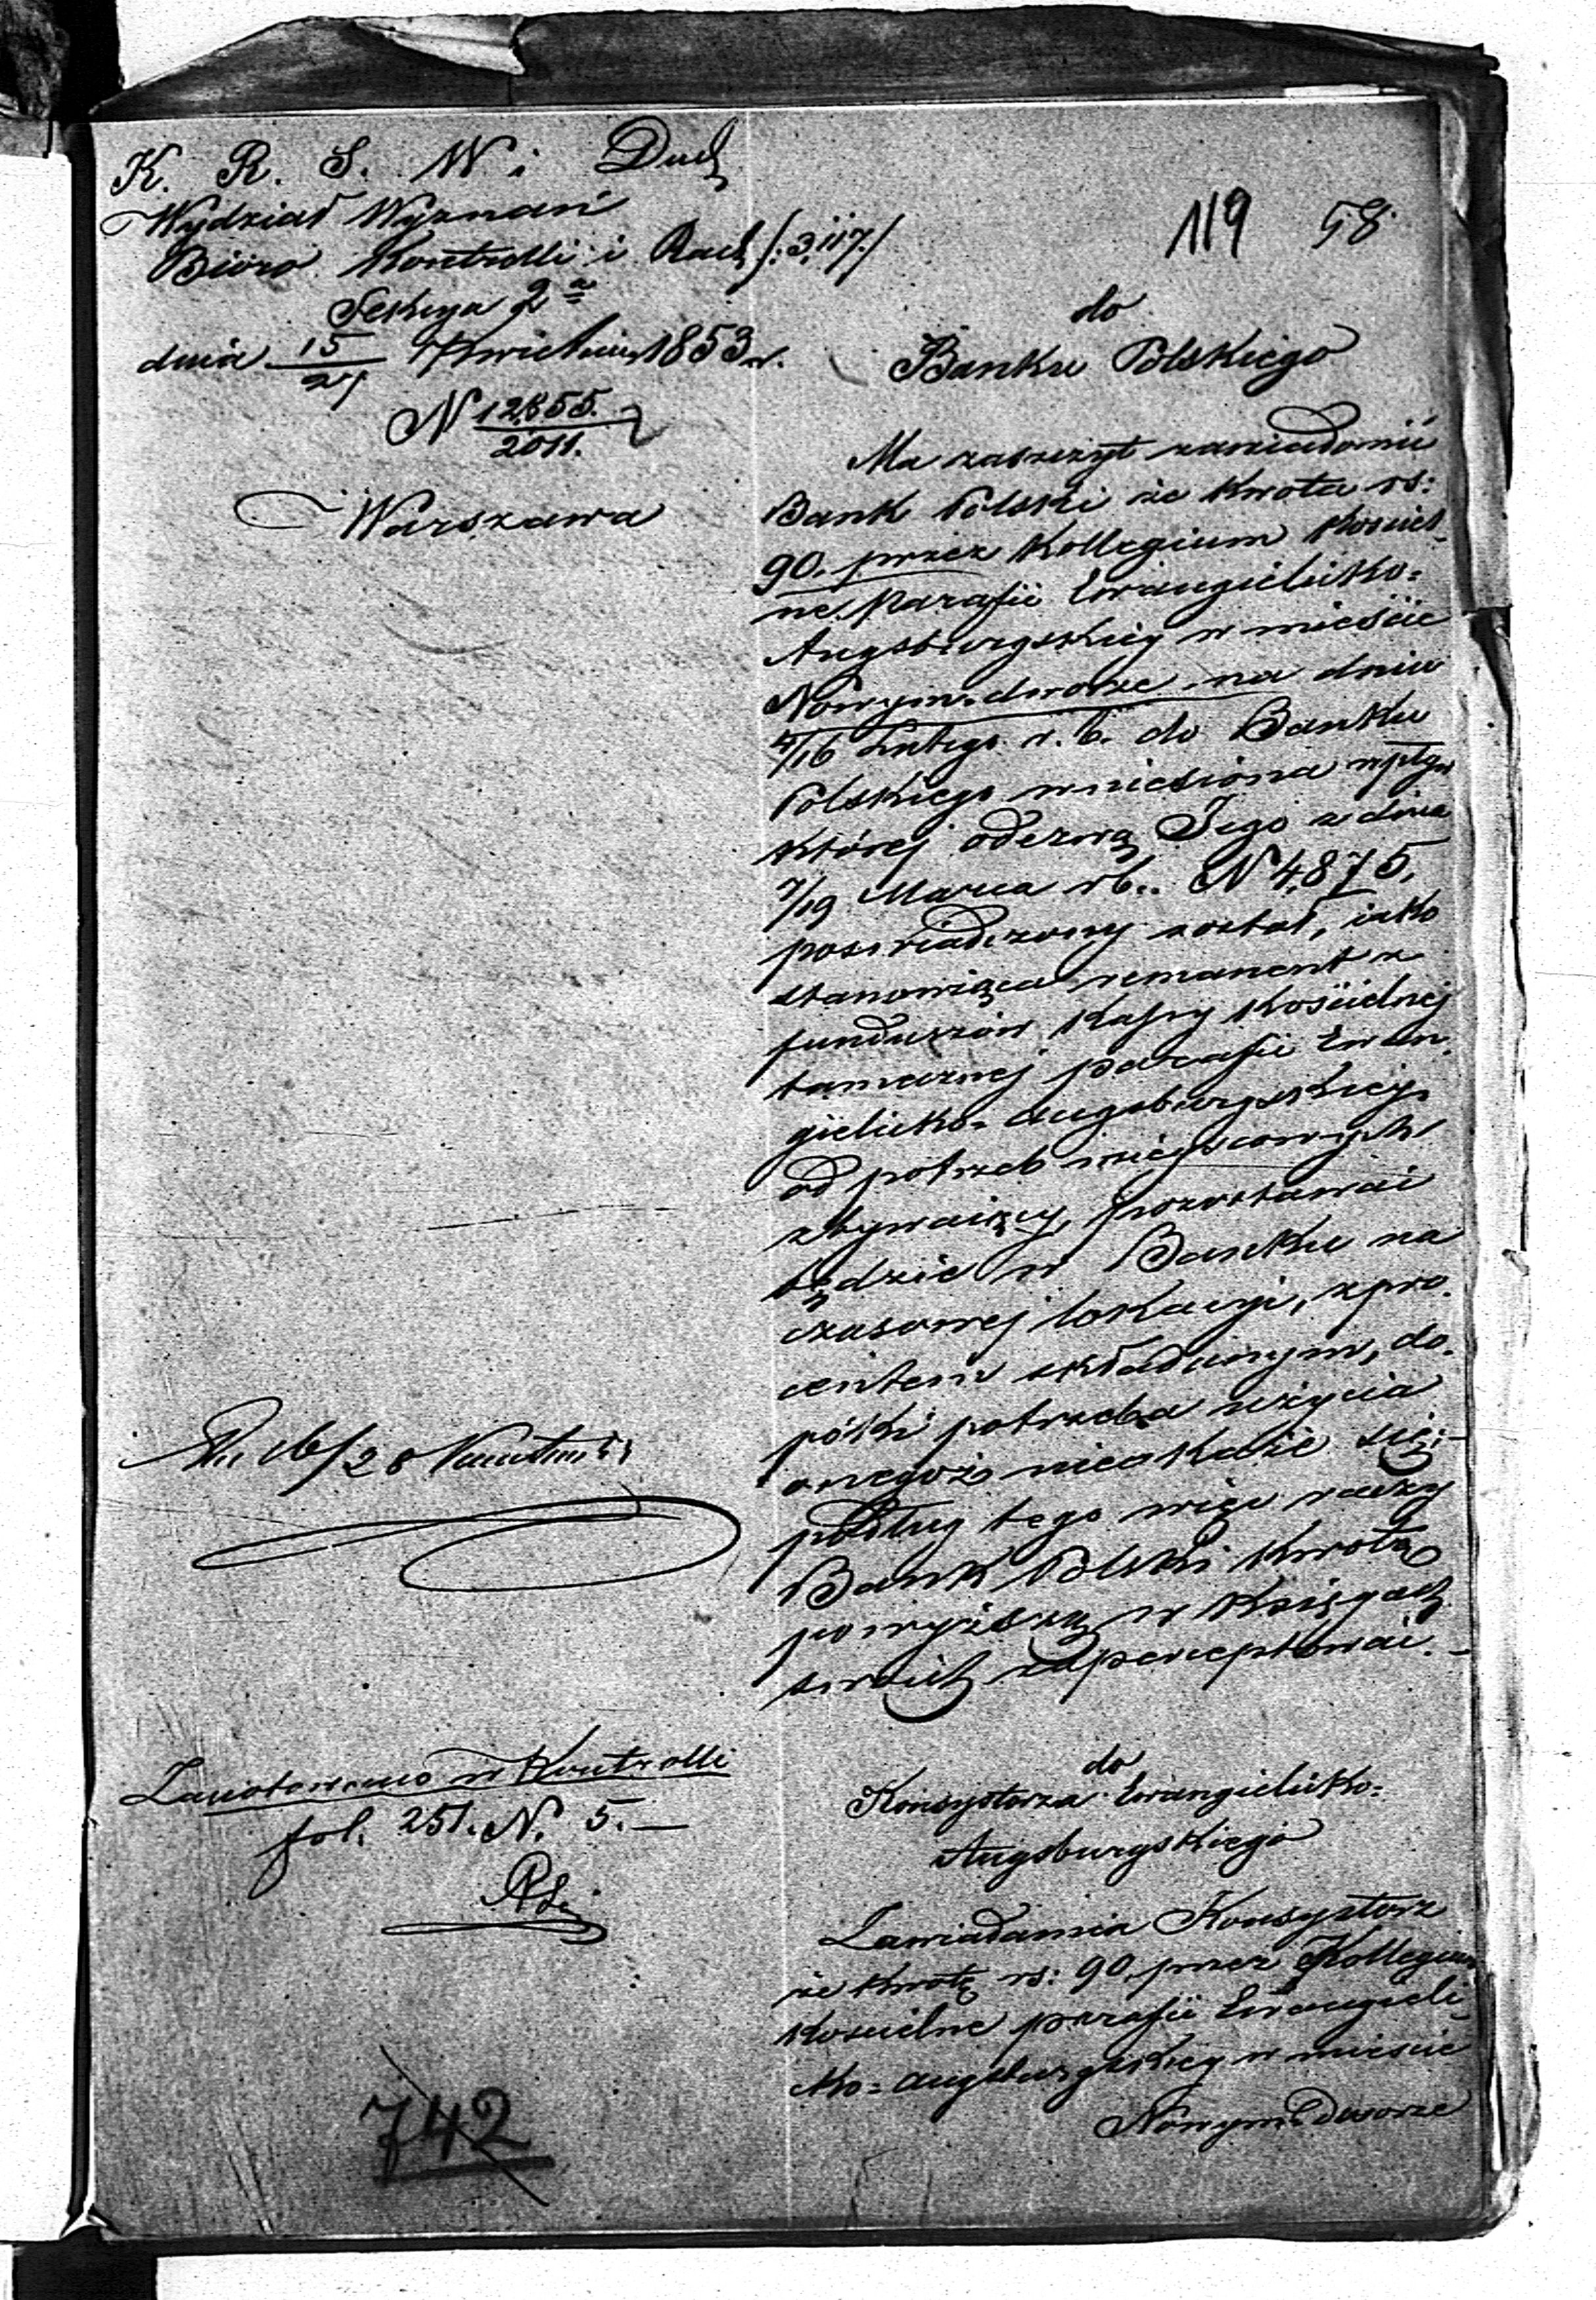 K. R. S. W i Duch
Wydział Wyznań
Biuro Kontrolli i Rach /:3.117./
Sekcya 2a
dnia 15/27 Kwietnia 1853 r.
N 12,855./2011.
Warszawa
119 58
do
Banku Polskiego
Ma zaszczyt zawiadomić
Bank Polski że kwota rs:
90. przez Kollegium Kościel-
ne Parafii Ewangielicko=
Augsburgskiey w mieście
Nowym-dworze na dniu
4/16 Lutego r. b. do Banku
Polskiego wniesiona wpływ
której odezwą Jego z dnia
7/19 Marca rb.. N 4,875,
poswiadczony został, iako
stanowiąca remanent z
funduszów Kassy Kościelnej
tamecznej parafii Ewan-
gielicko-Augsburgskiey
od potrzeb mieyscowych
zbywaiący, pozostawać
będzie w Banku na
czasowej lokacyi, z pro-
centem składanym, do-
póki potrzeba użycia
onegoż nieokaże się;-
podług tego więc raczy
Bank Polski kwotę
powyższą w Księgach
swoich zaperceptować.-
16/28
Zanotowano w Kontrolli
fol. 251. N. 5.—
do
Konsystorza Ewangielicko=
Augsburgskiego
Zawiadamia Konsystorz
że kwotę rs: 90 przez Kollegium
Kościelne parafii Ewangieli-
cko=Augsburgskiey w mieście
Nowym dworze
742